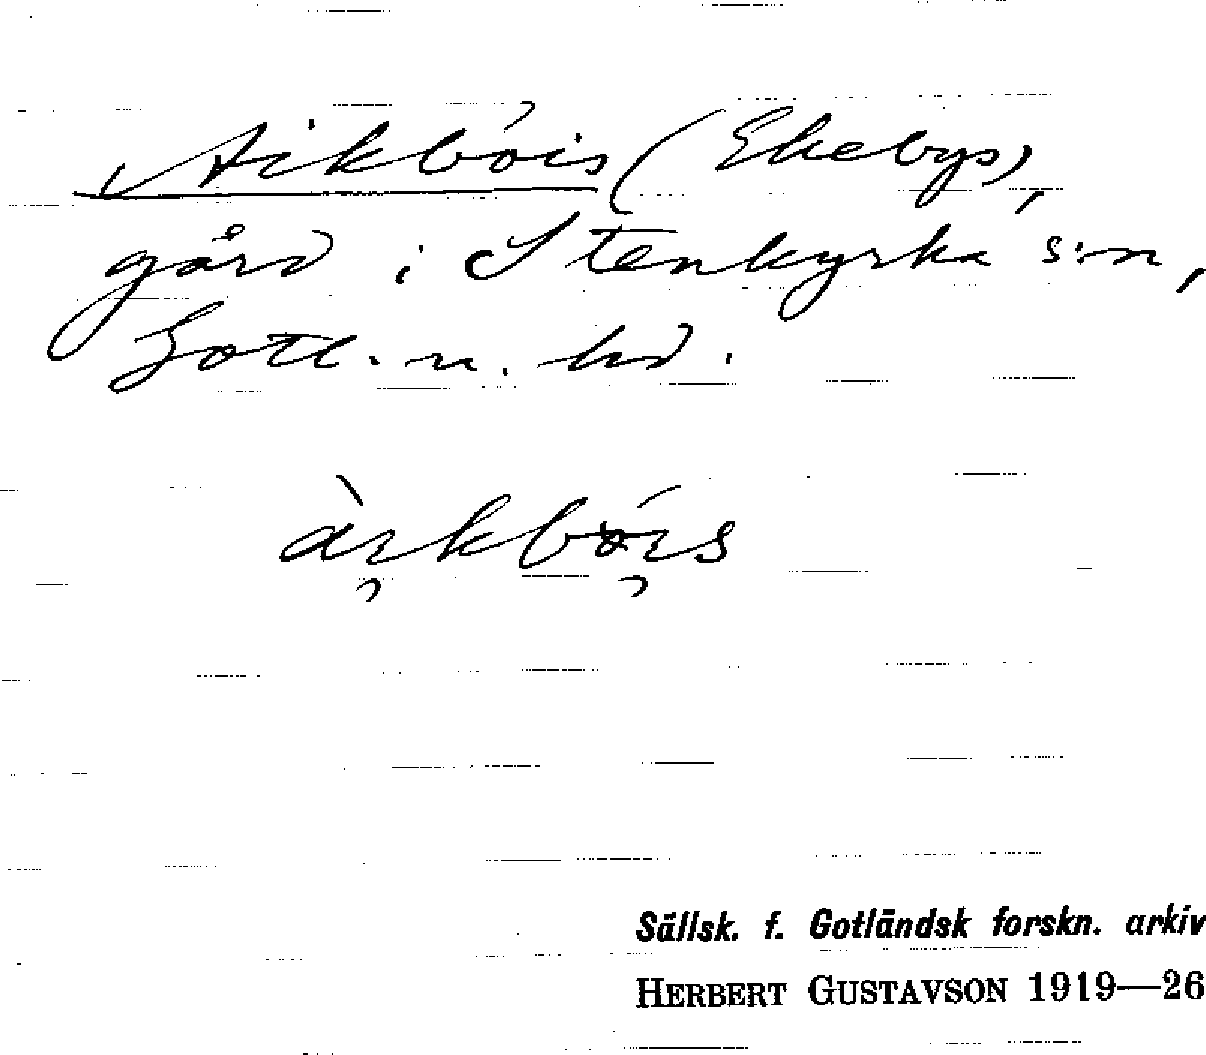 Aikbóis (Ekebys),
gård i Stenkyrka s:n,
Gotl. n. hd.
àıkbóıs
Sällsk. f. Gotländsk forskn. arkiv
HERBERT GUSTAVSON 1919—26